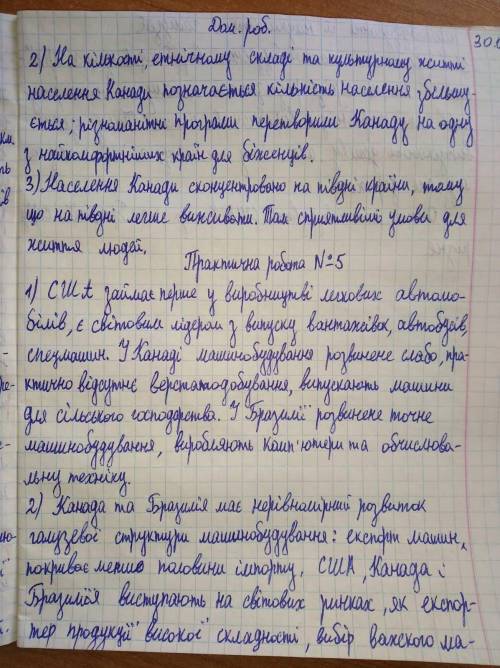 Дом. роб.
30.0
2) На кількості, етнічному складі та культурному житті
населення Канади позначається кількість населення збільшу-
ється; різноманітні програми перетворили Канаду на одну
з найкомфортніших країн для біженців.
3) Населення Канади сконцентровано на півдні країни, тому
що на півдні легше виживати. Там сприятливіші умови для
життя людей.
Практична робота №5
1) США займає перше у виробництві легкових автомо-
білів, є світовим лідером з випуску вантажівок, автобусів,
спецмашин. У Канаді машинобудування розвинене слабо, пра-
ктично відсутнє верстатодобування, випускають машини
для сільського господарства. У Бразилії розвинене точне
машинобудування, виробляють комп'ютери та обчислюва-
льну техніку.
2) Канада та Бразилія має нерівномірний розвиток
галузевої структури машинобудування: експорт машин,
покриває метию половини імпорту. США, Канада і
Бразилія виступають на світових ринках, як експор-
тер продукції високої складності, вибір важкого ма-